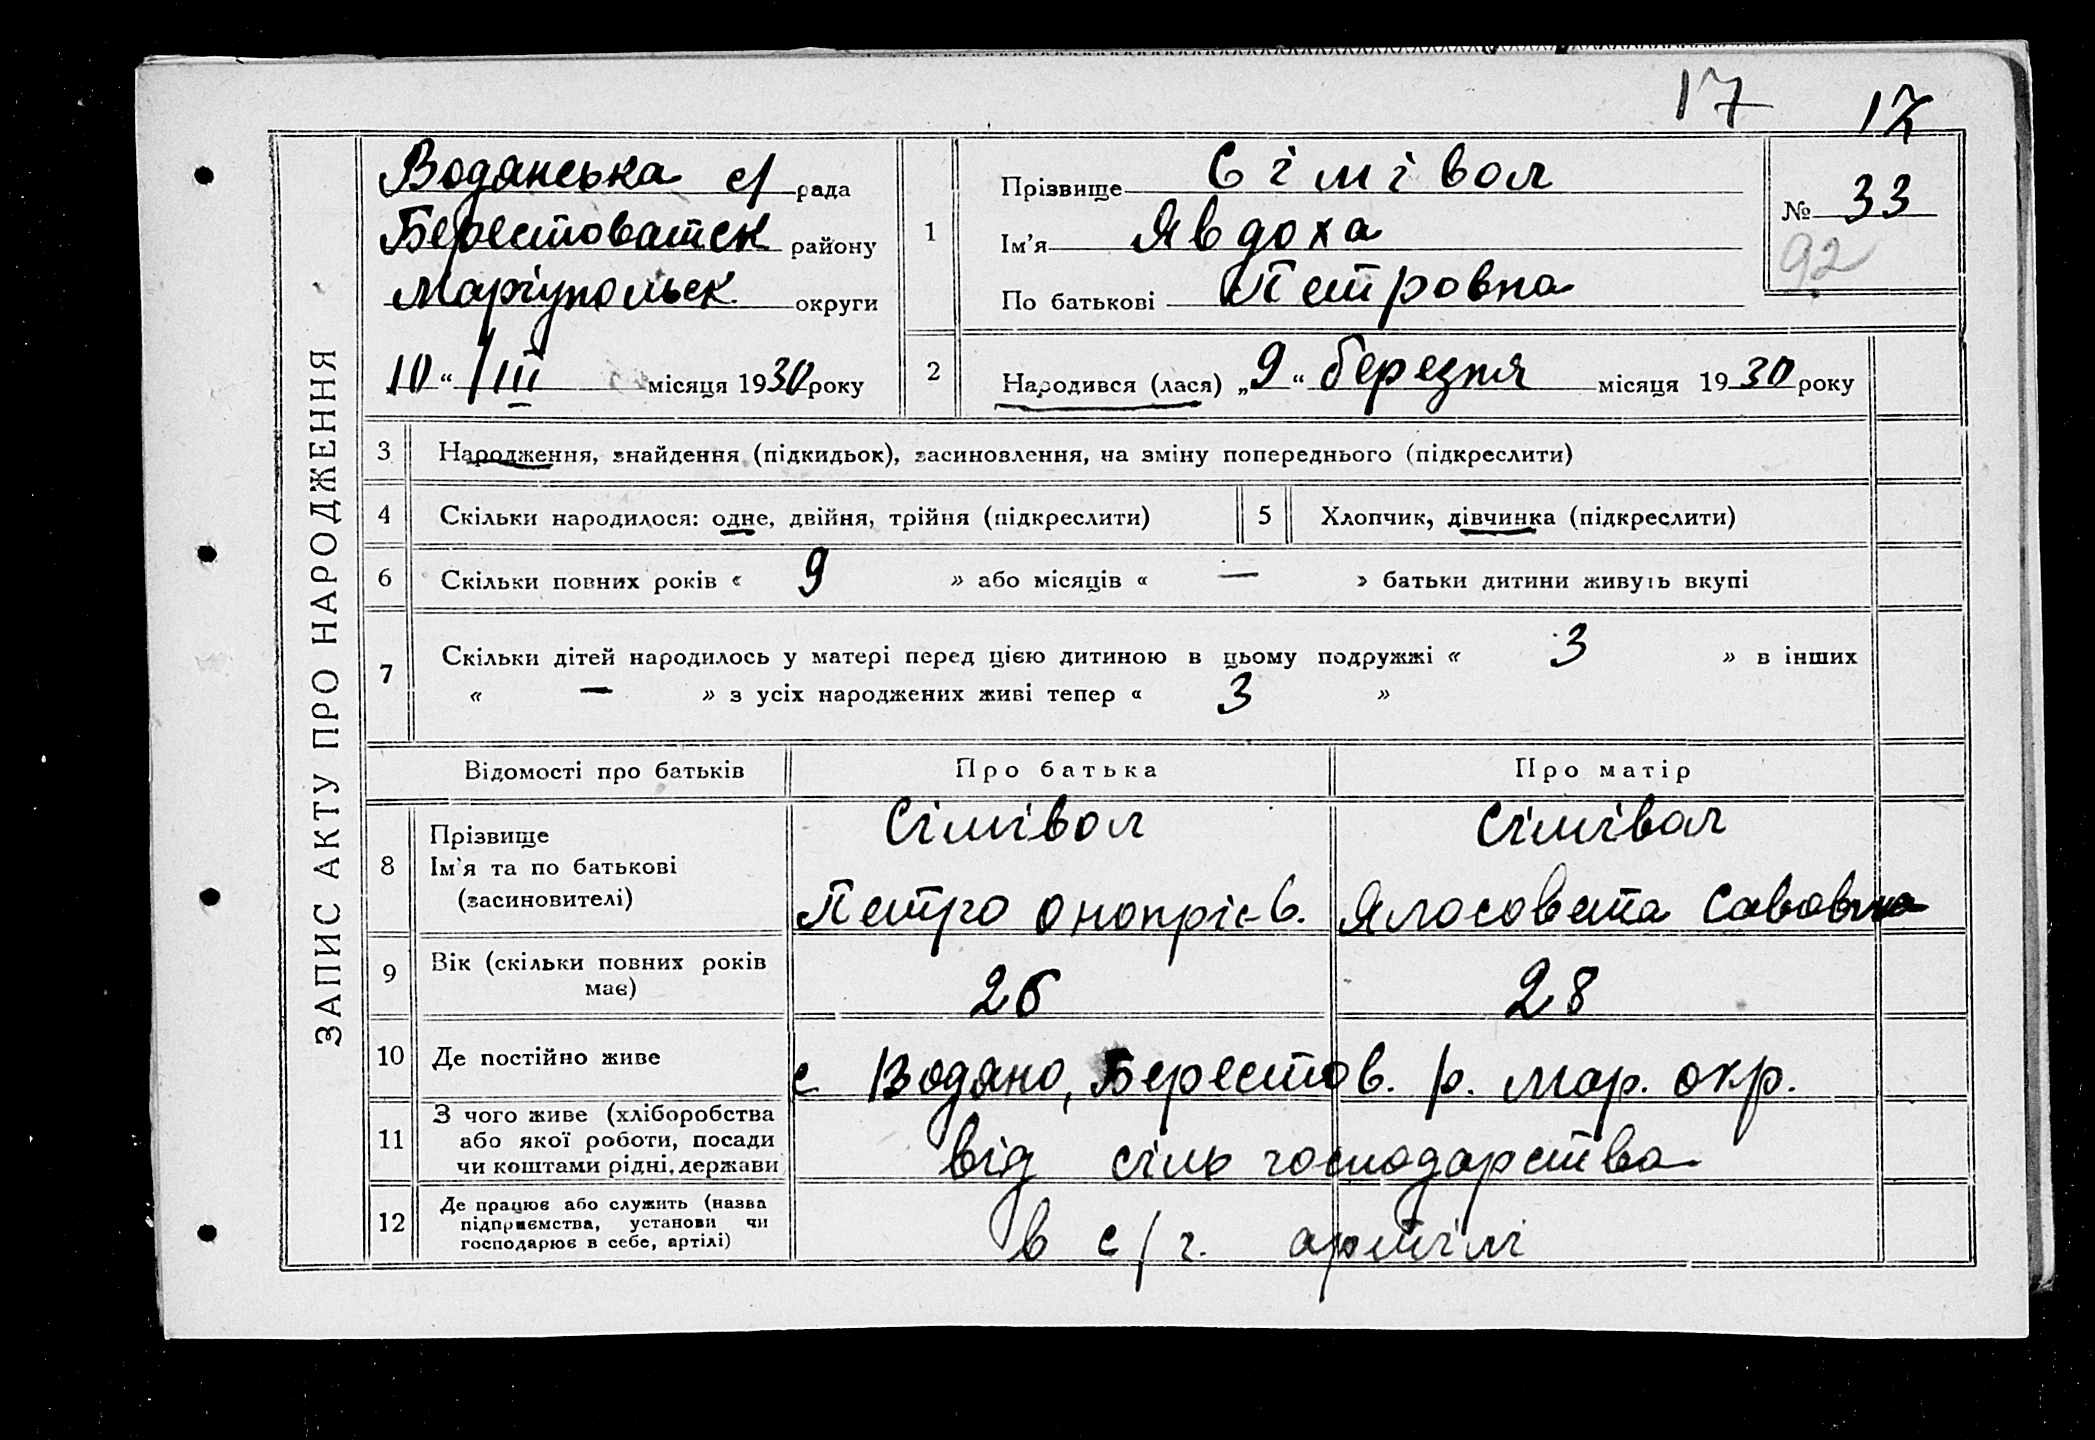 17 17
ЗАПИС АКТУ ПРО НАРОДЖЕННЯ
Водянська с/ рада
Берестоватск району
Маріупольск округи
10 “ /III місяця 1930 року
1
Прізвище Сімівол
Ім’я Явдоха
По батькові Петровна
№ 33
92
2 Народився (лася) „9“ березня місяця 1930 року
3 Народження, знайдення (підкидьок), засиновлення, на зміну попереднього (підкреслити)
4 Скільки народилося: одне, двійня, трійня (підкреслити) 5 Хлопчик, дівчинка (підкреслити)
6 Скільки повних років « 9 » або місяців « — » батьки дитини живуть вкупі
7 Скільки дітей народилось у матері перед цією дитиною в цьому подружжі « 3 » в інших
« — » з усіх народжених живі тепер « 3 »
Відомості про батьків Про батька Про матір
8 Прізвище
Ім’я та по батькові
(засиновителі)
Сімівол
Петро Онопрієв.
Сімівол
Ялосовета Савовна
9 Вік (скільки повних років
має)
26 28
10 Де постійно живе с Водяно, Берестов. р. Мар. окр.
11 З чого живе (хліборобства
або якої роботи, посади
чи коштами рідні, держави
від сіль господарства
12 Де працює або служить (назва
підприємства, установи чи
господарює в себе, артілі)
в с/г. артілі